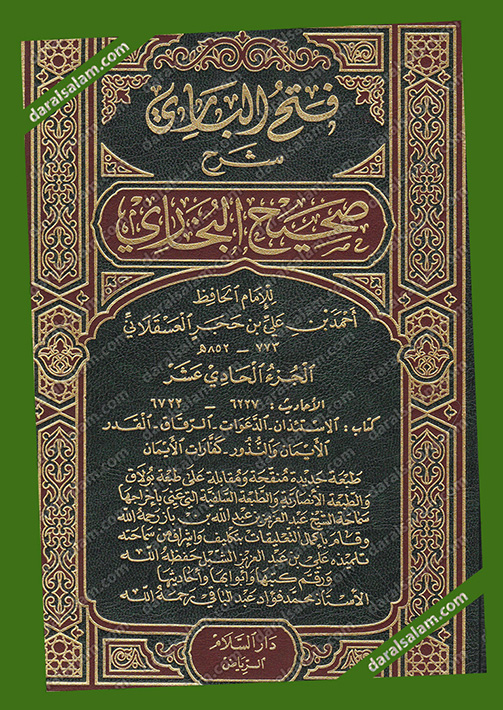 فتح الباري
شرح
صحيح البخاري
للإمام الحافظ
أحمد بن علي بن حجر العسقلاني
٧٧٣ - ٨٥٢ هـ
الجزء الحادي عشر
الأحاديث : ٦٢٢٧ - ٦٧٢٢
كتاب : الاستئذان - الدعوات - الرقاق - القدر
الأيمان والنذور - كفارات الأيمان
طبعة جديدة منقحة ومقابلة على طبعة بولاق
والطبعة الأنصارية والطبعة السلفية التي عني بإخراجها
سماحة الشيخ عبد العزيز بن عبد الله بن باز رحمه الله
وقام بإكمال التعليقات بتكليف وإشراف من سماحته
تلميذه علي بن عبد العزيز الشبل حفظه الله
ورقم كتبها وأبوابها وأحاديثها
الأستاذ محمد فؤاد عبد الباقي رحمه الله
دار السلام
الرياض
daralsalam.com
daralsalam.com